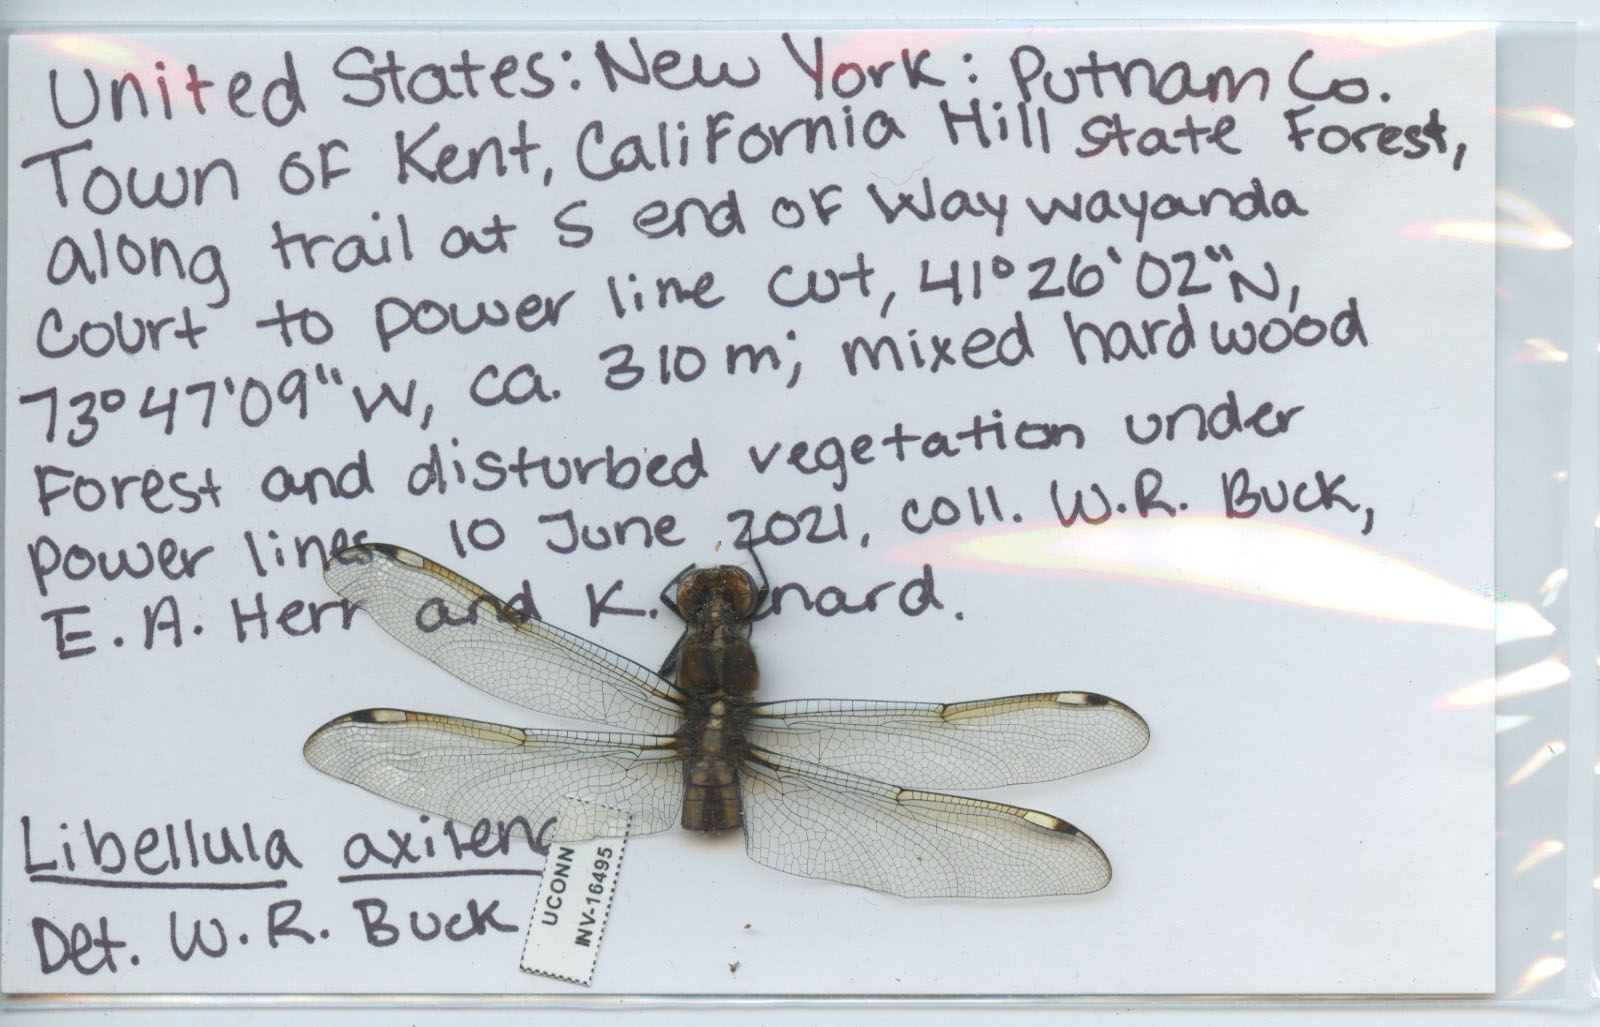 United States: New York: Putnam Co.
Town of Kent, California Hill State Forest,
along trail at S end of Waywayanda
Court to power line cut, 41°26'02"N,
73°47'09"W, ca. 310 m; mixed hardwood
Forest and disturbed vegetation under
power lines 10 June 2021, coll. W.R. Buck,
E. A. Herr and K. nard.
Libellula axilena
Det. W. R. Buck
UCONN
INV-16495